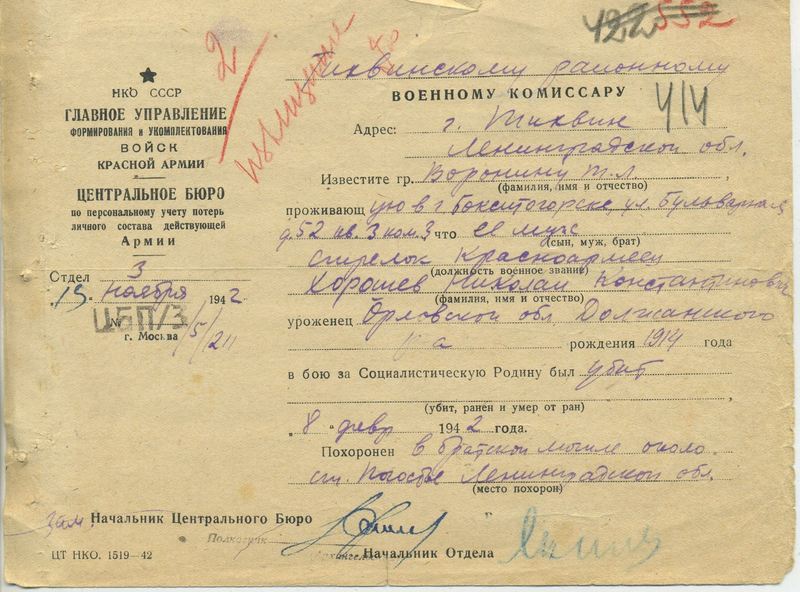 НКО СССР
ГЛАВНОЕ УПРАВЛЕНИЕ
ФОРМИРОВАНИЯ и УКОМПЛЕКТОВАНИЯ
ВОЙСК
КРАСНОЙ АРМИИ
ЦЕНТРАЛЬНОЕ БЮРО
по персональному учету потерь
личного состава действующей
Армии
Отдел 3
13 ноября 1942
№ ЦБП/3
г. Москва
2
422 552
Тихвинскому районному
ВОЕННОМУ КОМИССАРУ
414
Адрес: г. Тихвин
Ленинградской обл.
Известите гр. Воронину Т.Л.
(фамилия, имя и отчество)
проживающ ую в г. Бокситогорске, ул. Бульварная
д.52 кв. 3 ком. 3 что ее муж
(сын, муж, брат)
стрелок Красноармеец
(должность военное звание)
Хорошев Николай Константинович
(фамилия, имя и отчество)
уроженец Орловской обл Должанского
р-на рождения 1914 года
в бою за Социалистическую Родину был убит
(убит, ранен и умер от ран)
„8 “ февр 1942 года.
Похоронен в братской могиле около
ст. Погостье Ленинградской обл.
(место похорон)
Зам. Начальник Центрального Бюро
Полковник
Начальник Отдела
ЦТ НКО. 1519—42